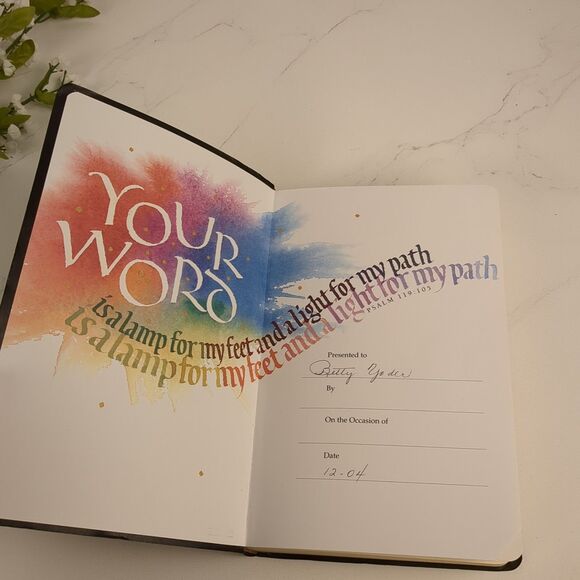 YOUR
WORD
is a lamp for my feet and a light for my path
is a lamp for my feet and a light for my path
PSALM 119:105
Presented to
Betty Yoder
By
On the Occasion of
Date
12-04